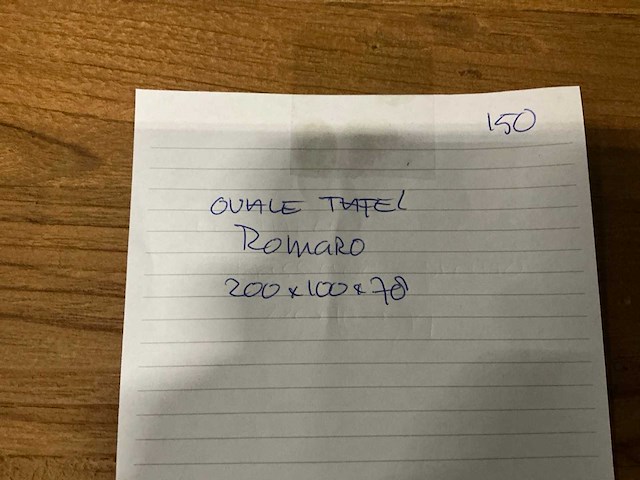 150
OVALE TAFEL
ROMARO
200x100x78